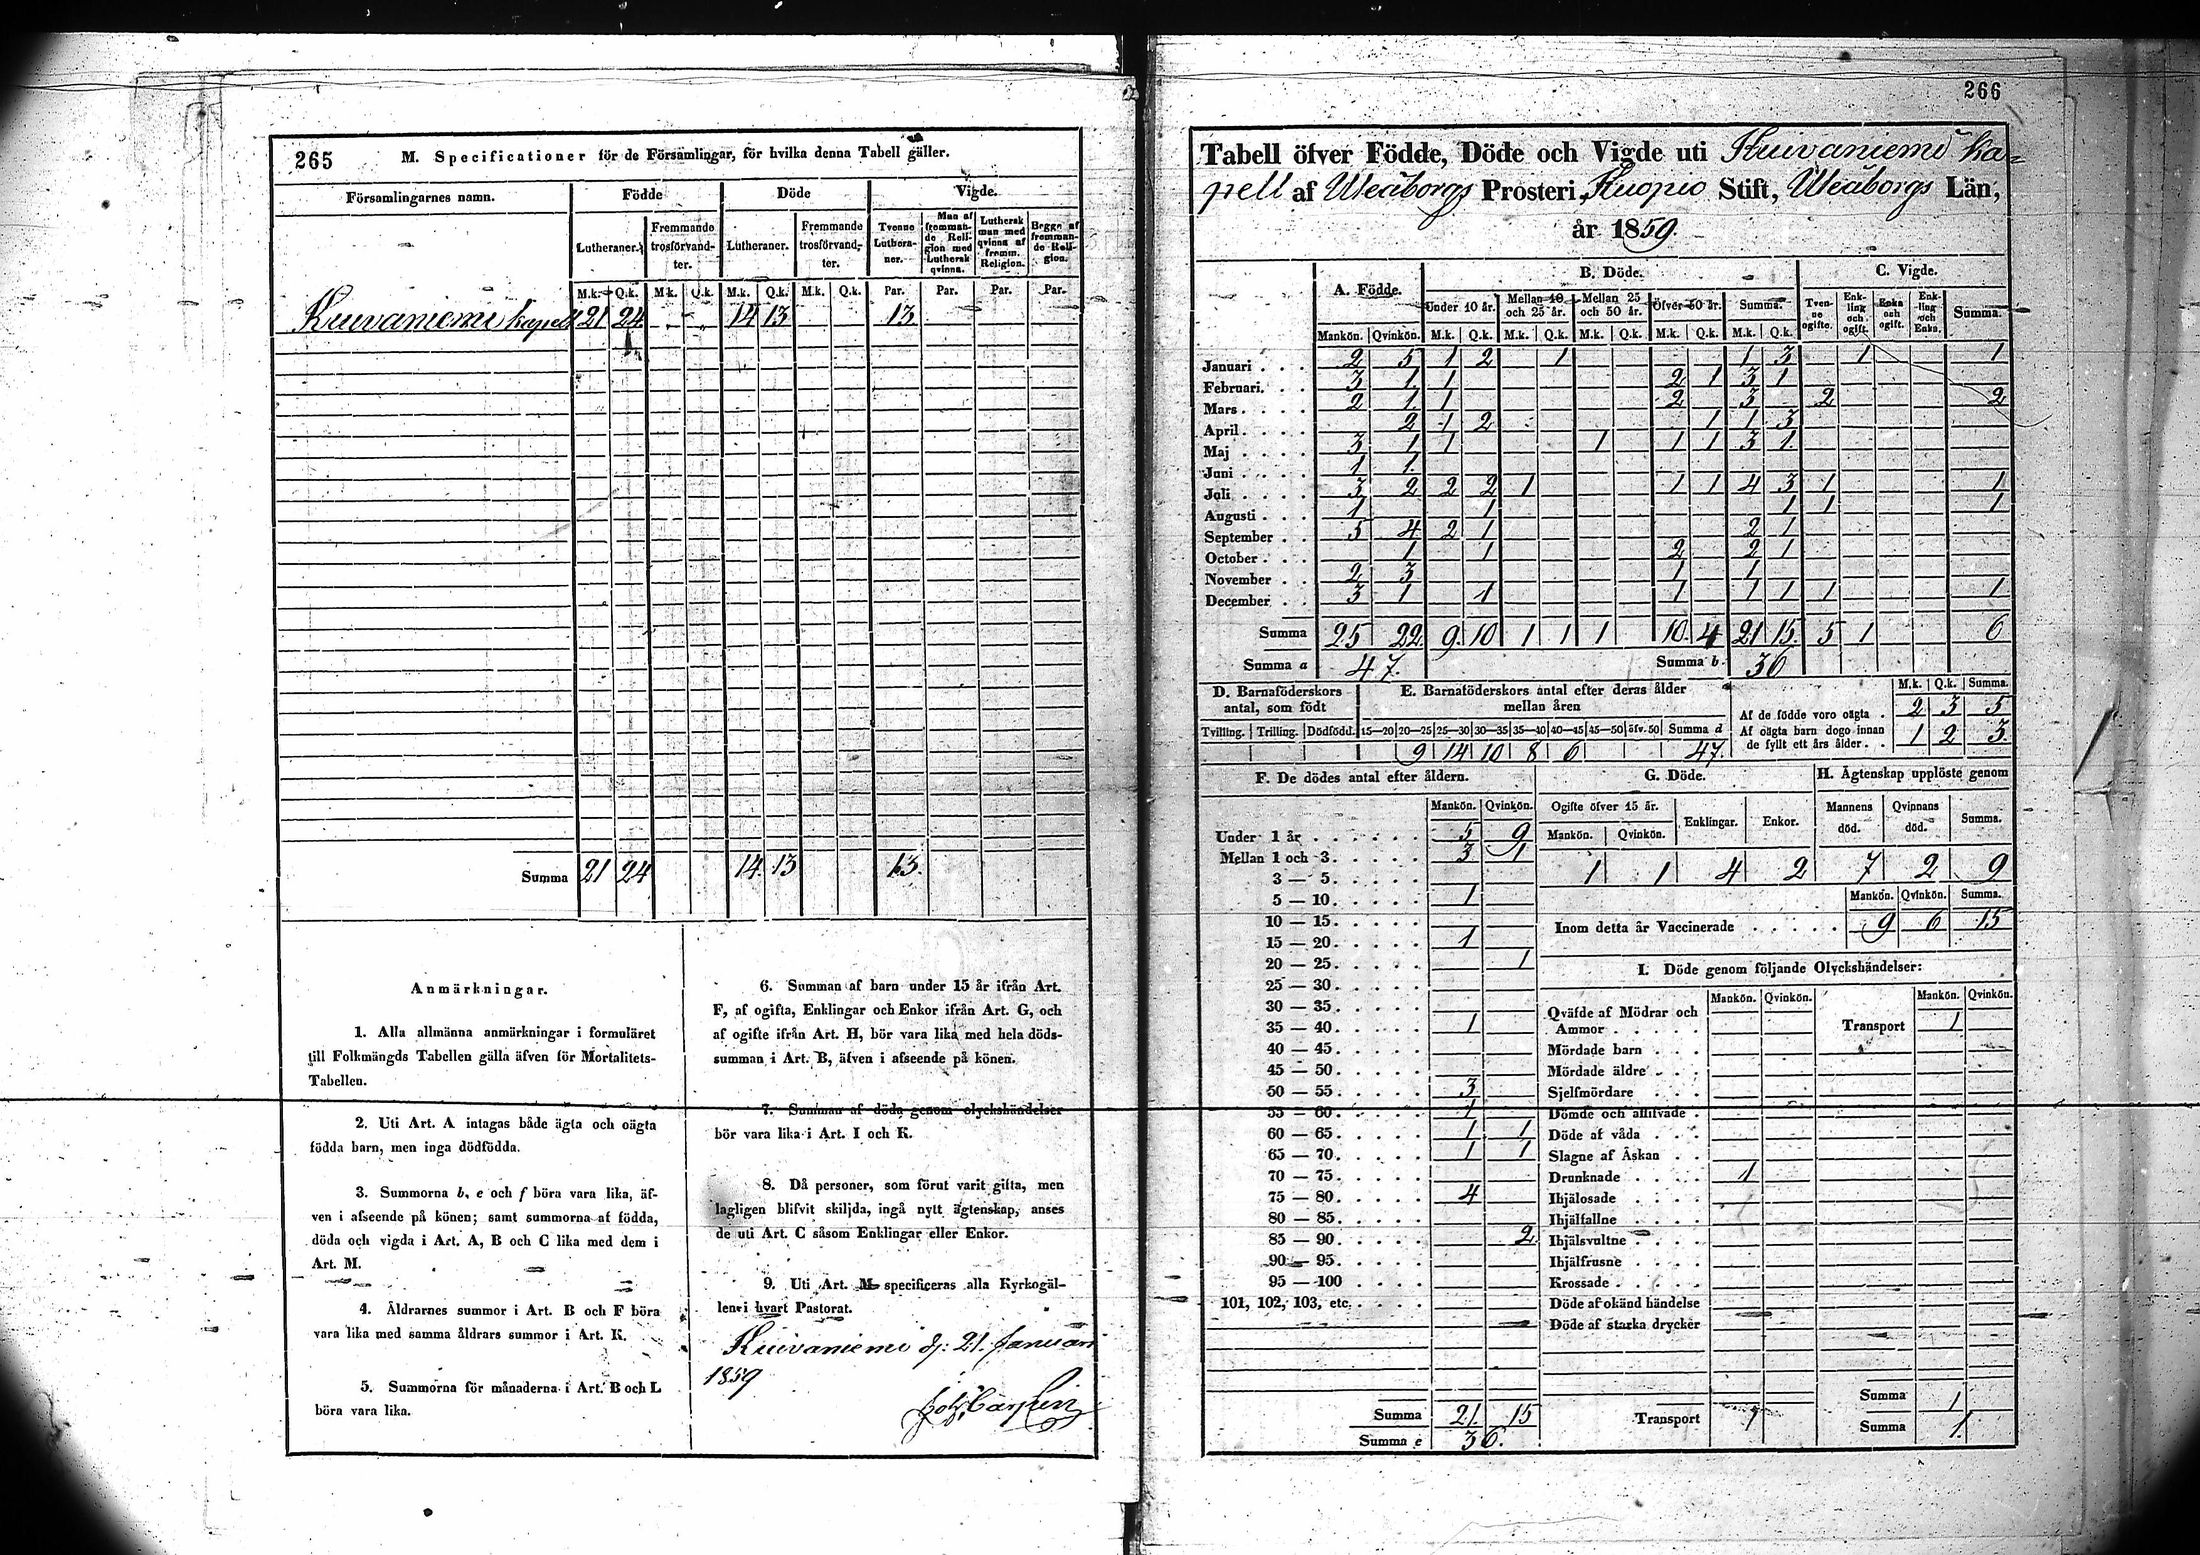 265 M. Specificationer för de Församlingar, för hvilka denna Tabell gäller.
Församlingarnes namn. Födde Döde Vigde.
Lutheraner. Fremmande trosförvandter. Lutheraner. Fremmande trosförvandter. Tvenne Lutheraner. Man af fremmande Religion med Luthersk qvinna. Luthersk man med qvinna af fremm. Religion. Begge af fremmande Religion.
M.k. Q.k. M.k. Q.k. M.k. Q.k. M.k. Q.k. Par. Par. Par. Par.
Kuivaniemi kapell 21 24 14 13 13
Summa 21 24 14 13 13.
Anmärkningar.
1. Alla allmänna anmärkningar i formuläret
till Folkmängds Tabellen gälla äfven för Mortalitets-
Tabellen.
2. Uti Art. A intagas både ägta och oägta
födda barn, men inga dödfödda.
3. Summorna b, e och f böra vara lika, äf-
ven i afseende på könen; samt summorna af födda,
döda och vigda i Art. A, B och C lika med dem i
Art. M.
4. Åldrarnes summor i Art. B och F böra
vara lika med samma åldrars summor i Art. K.
5. Summorna för månaderna i Art. B och L
böra vara lika.
6. Summan af barn under 15 år ifrån Art.
F, af ogifta, Enklingar och Enkor ifrån Art. G, och
af ogifte ifrån Art. H, bör vara lika med hela döds-
summan i Art. B, äfven i afseende på könen.
7. Summan af döda genom olyckshändelser
bör vara lika i Art. I och K.
8. Då personer, som förut varit gifta, men
lagligen blifvit skiljda, ingå nytt ägtenskap, anses
de uti Art. C såsom Enklingar eller Enkor.
9. Uti Art. M specificeras alla Kyrkogäl-
len i hvart Pastorat.
Kuivaniemi d. 21. Januari
1859
266
Tabell öfver Födde, Döde och Vigde uti Kuivaniemi ka-
pell af Uleåborgs Prosteri, Kuopio Stift, Uleåborgs Län,
år 1859.
A. Födde. B. Döde. C. Vigde.
Under 10 år. Mellan 10 och 25 år. Mellan 25 och 50 år. Öfver 50 år. Summa. Tvenne ogifte. Enkling och ogift. Enka och ogift. Enkling och Enka. Summa.
Mankön. Qvinkön. M.k. Q.k. M.k. Q.k. M.k. Q.k. M.k. Q.k. M.k. Q.k.
Januari . . . 2 5 1 2 1 1 3 1 1
Februari. . . 3 1 1 2 1 3 1
Mars . . . . 2 1 1 2 3 2 2
April . . . . 2 1 2 1 1 3
Maj . . . . 3 1 1 1 1 1 3 1
Juni . . . . 1 1
Juli . . . . 3 2 2 2 1 1 1 4 3 1 1
Augusti . . . 1 1 1 1 1
September . . 5 4 2 1 2 1
October . . . 1 1 2 2 1
November . . 2 3 1 1
December . . 3 1 1 1 1 1 1 1
Summa 25 22 9 10 1 1 1 10 4 21 15 5 1 6
Summa a 47. Summa b. 36
D. Barnaföderskors antal, som födt
E. Barnaföderskors antal efter deras ålder mellan åren
M.k. Q.k. Summa.
Af de födde voro oägta . 2 3 5
Af oägta barn dogo innan de fyllt ett års ålder . . 1 2 3
Tvilling. Trilling. Dödfödd. 15—20 20—25 25—30 30—35 35—40 40—45 45—50 öfv. 50 Summa d
9 14 10 8 6 47.
F. De dödes antal efter åldern. G. Döde. H. Ägtenskap upplöste genom
Mankön. Qvinkön. Ogifte öfver 15 år. Enklingar. Enkor. Mannens död. Qvinnans död. Summa.
Mankön. Qvinkön.
1 1 4 2 7 2 9
Mankön. Qvinkön. Summa.
Inom detta år Vaccinerade . . . . . 9 6 15
Under 1 år . . . . . . 5 9
Mellan 1 och 3. . . . . 3 1
3 — 5. . . . .
5 — 10. . . . . 1
10 — 15. . . . .
15 — 20. . . . . 1
20 — 25. . . . . 1
25 — 30. . . . .
30 — 35. . . . .
35 — 40. . . . . 1
40 — 45. . . . .
45 — 50. . . . .
50 — 55. . . . . 3
55 — 60. . . . . 1
60 — 65. . . . . 1 1
65 — 70. . . . . 1 1
70 — 75. . . . .
75 — 80. . . . . 4
80 — 85. . . . .
85 — 90. . . . . 2
90 — 95. . . . .
95 — 100 . . . .
101, 102, 103, etc. . . . .
Summa 21. 15
Summa e 36.
I. Döde genom följande Olyckshändelser:
Mankön. Qvinkön. Mankön. Qvinkön.
Qväfde af Mödrar och
Ammor . . . . . Transport 1
Mördade barn . . .
Mördade äldre . . .
Sjelfmördare . . .
Dömde och aflifvade .
Döde af våda . . .
Slagne af Åskan . .
Drunknade . . . . 1
Ihjälosade . . . .
Ihjälfallne . . . .
Ihjälsvultne . . . .
Ihjälfrusne . . . .
Krossade . . . . .
Döde af okänd händelse
Döde af starka drycker
Summa 1
Transport 1 Summa 1.